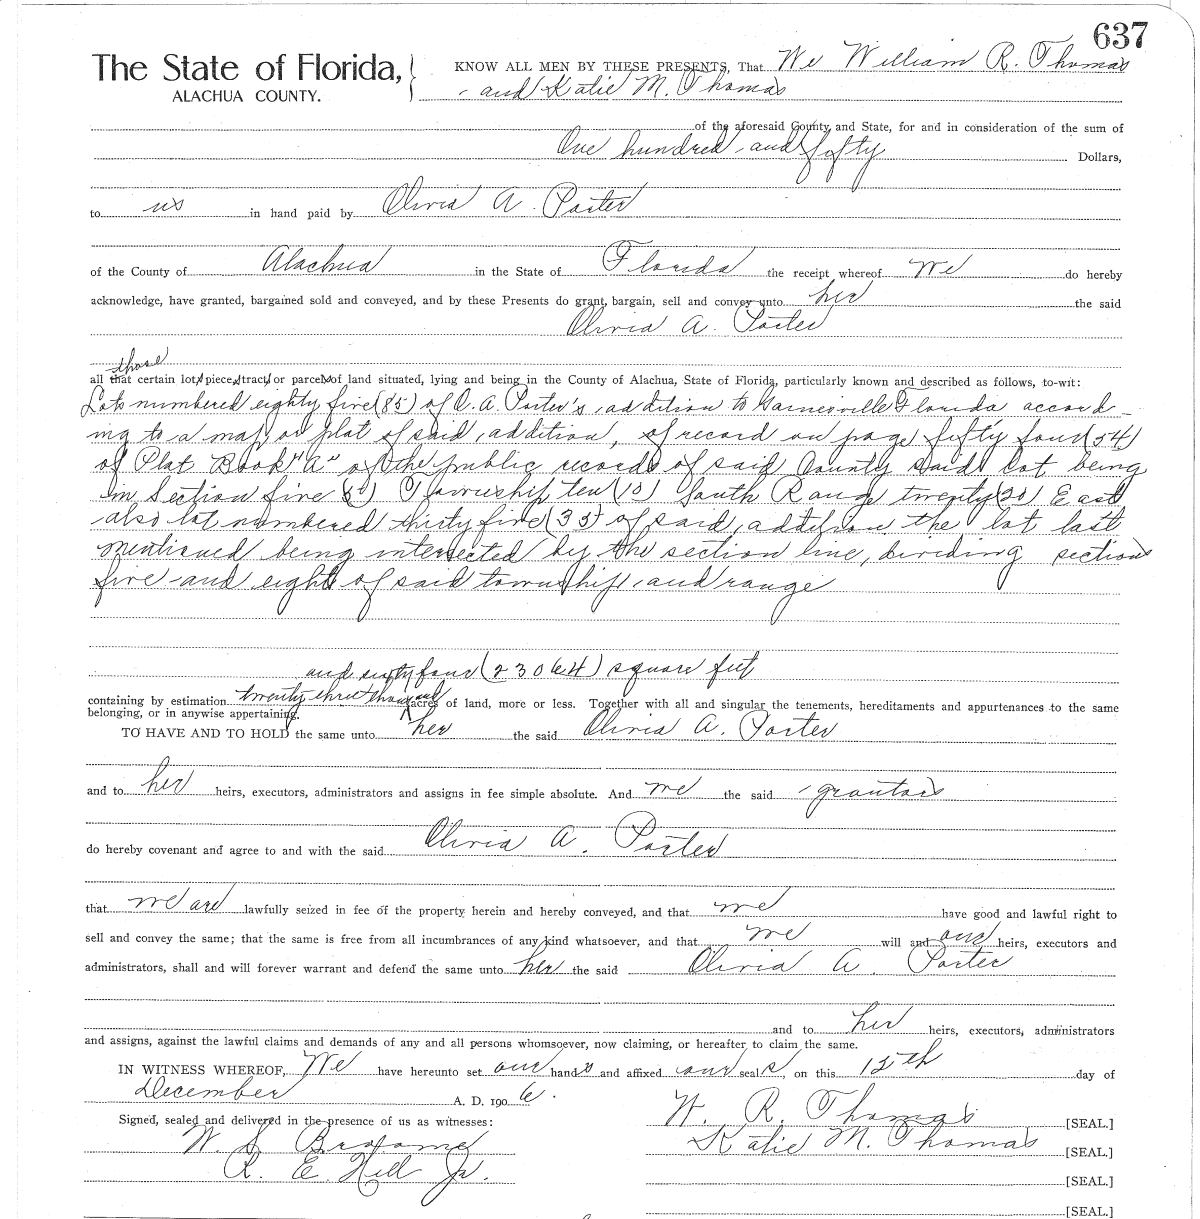 637
The State of Florida,
ALACHUA COUNTY.
KNOW ALL MEN BY THESE PRESENTS, That We William R. Thomas
and Katie M. Thomas
of the aforesaid County and State, for and in consideration of the sum of
One hundred and fifty Dollars,
to us in hand paid by Olivia A. Porter
of the County of Alachua in the State of Florida the receipt whereof we do hereby
acknowledge, have granted, bargained sold and conveyed, and by these Presents do grant, bargain, sell and convey unto her the said
Olivia A. Porter
those
all that certain lot, piece, tract, or parcel of land situated, lying and being in the County of Alachua, State of Florida, particularly known and described as follows, to-wit:
Lots numbered eighty five (85) of O. A. Porter's addition to Gainesville Florida accord-
ing to a map or plat of said addition, of record on page fifty four (54)
of Plat Book "A" of the public records of said County said lot being
in Section five (5) Township ten (10) South Range twenty (20) East
also lot numbered thirty five (35) of said addition the lot last
mentioned being intersected by the section line, dividing sections
five and eight of said township and range
and sixty four (23064) square feet
containing by estimation twenty three thousand acres of land, more or less. Together with all and singular the tenements, hereditaments and appurtenances to the same
belonging, or in anywise appertaining.
TO HAVE AND TO HOLD the same unto her the said Olivia A. Porter
and to her heirs, executors, administrators and assigns in fee simple absolute. And we the said grantors
do hereby covenant and agree to and with the said Olivia A. Porter
that we are lawfully seized in fee of the property herein and hereby conveyed, and that we have good and lawful right to
sell and convey the same; that the same is free from all incumbrances of any kind whatsoever, and that we will and our heirs, executors and
administrators, shall and will forever warrant and defend the same unto her the said Olivia A. Porter
and to her heirs, executors, administrators
and assigns, against the lawful claims and demands of any and all persons whomsoever, now claiming, or hereafter to claim the same.
IN WITNESS WHEREOF, We have hereunto set our hands and affixed our seals, on this 12th day of
December A. D. 1906.
Signed, sealed and delivered in the presence of us as witnesses:
W. R. Thomas [SEAL.]
W. S. Broome
Katie M. Thomas [SEAL.]
R. E. Hill Jr.
[SEAL.]
[SEAL.]